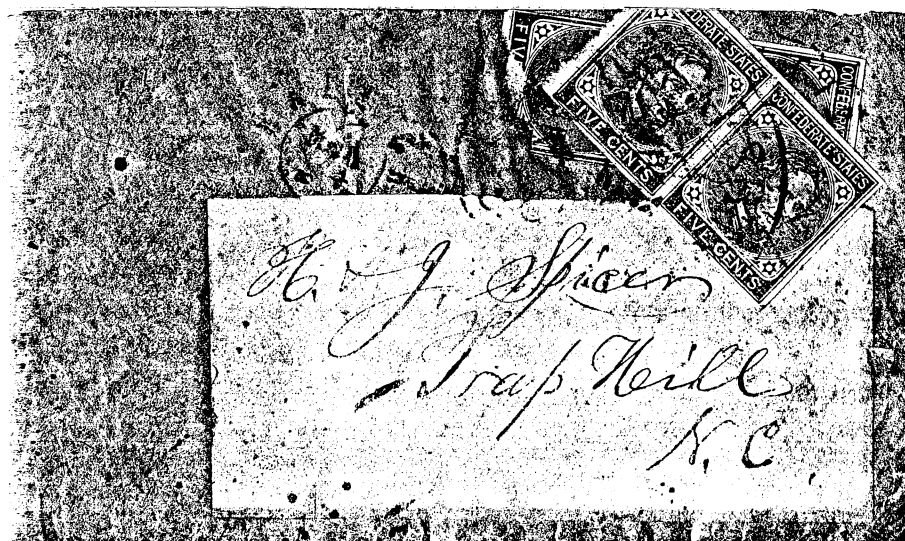 FIV
DERATE STATES
FIVE CENTS
CONFEDER
CONFEDERATE STATES
FIVE CENTS
H. & J. Spicer
Trap Hill
N. C.